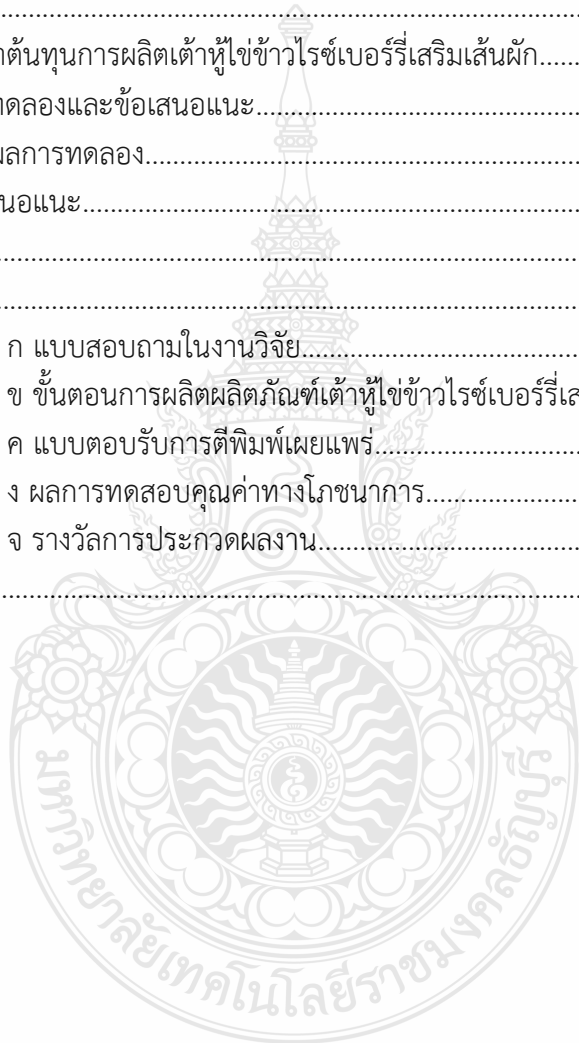 าต้นทุนการผลิตเต้าหู้ไข่ข้าวไรซ์เบอร์รี่เสริมเส้นผัก
ทดลองและข้อเสนอแนะ
ผลการทดลอง
นอแนะ
ก แบบสอบถามในงานวิจัย
ข ขั้นตอนการผลิตผลิตภัณฑ์เต้าหู้ไข่ข้าวไรซ์เบอร์รี่เส
ค แบบตอบรับการตีพิมพ์เผยแพร่
ง ผลการทดสอบคุณค่าทางโภชนาการ
จ รางวัลการประกวดผลงาน
มหาวิทยาลัยเทคโนโลยีราชมงคลธัญบุรี